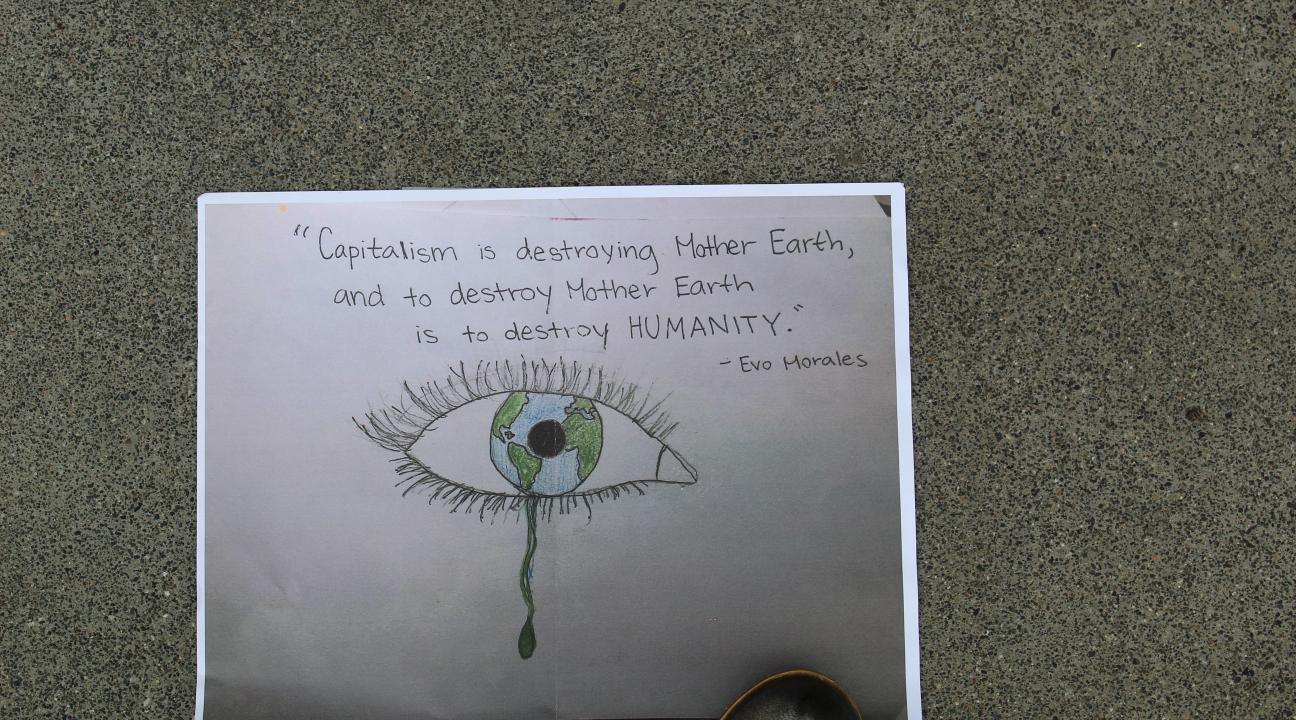 "Capitalism is destroying Mother Earth,
and to destroy Mother Earth
is to destroy HUMANITY."
- Evo Morales